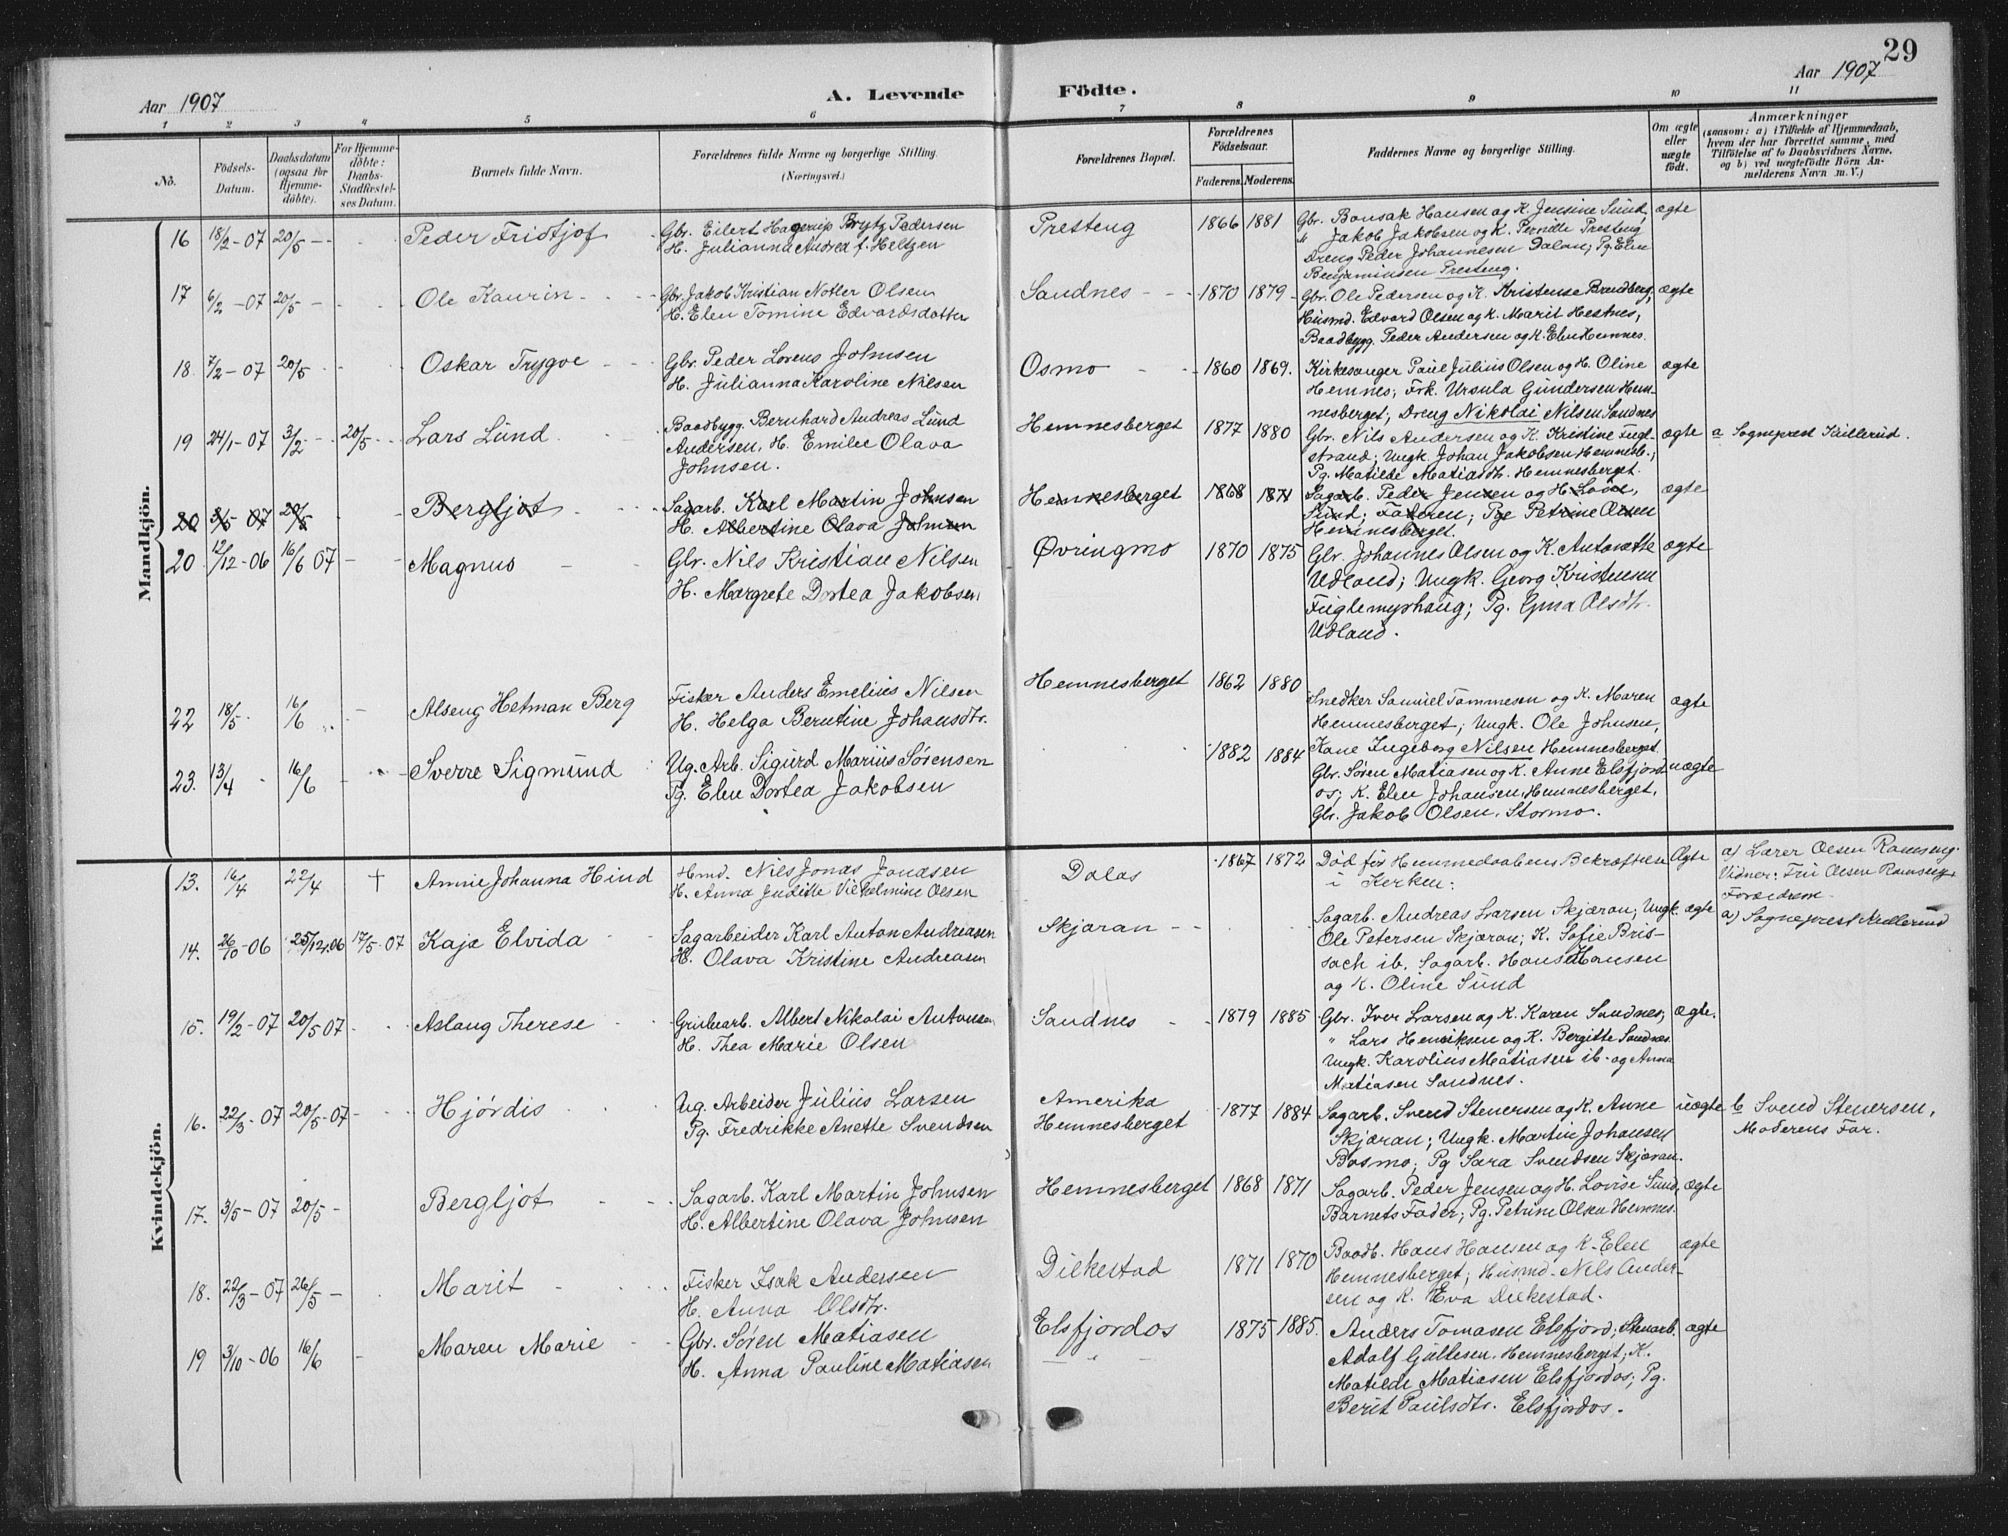 29
Aar 1907
A. Levende Fødte.
Aar 1907
1 2 3 4 5 6 7 8 9 10 11
No.
Fødsels-
Datum.
Daabsdatum
(ogsaa for
Hjemme-
døbte).
For Hjemme-
døbte:
Daabs-
Stadfæstel-
ses Datum.
Barnets fulde Navn.
Forældrenes fulde Navne og borgerlige Stilling.
(Næringsvei.)
Forældrenes Bopæl.
Forældrenes
Fødselsaar.
Faderens. Moderens.
Faddernes Navne og borgerlige Stilling.
Om ægte
eller
uægte
født.
Anmærkninger
(saasom: a) i Tilfælde af Hjemmedaab,
hvem der har forrettet samme, med
Tilføielse af to Daabsvidners Navne,
og b) ved uægtefødte Børn An-
melderens Navn m. V.)
Mandkjön.
16 18/2-07 20/5 - Peder Fridtjof
Gbr. Eilert Hagerup Brytz Pedersen
H. Julianna Andrea f. Heltzen
Presteng 1866 1881
Gbr. Bonsak Hansen og K. Jensine Sund,
" Jakob Jakobsen og K. Pernitte Presteng
Dreng Peder Johannesen Dalan; Pg. Elen
Benjaminsen Presteng.
ægte
17 6/2-07 20/5 - Ole Kaurin
Gbr. Jakob Kristian Notler Olsen
H. Elen Tomine Edvardsdatter
Sandnes 1870 1879
Gbr. Ole Pedersen og K. Kristense Brendberg,
Husmd. Edvard Olsen og K. Marit Hestnes,
Baadbygg. Peder Andersen og K. Elen Hemnes.
ægte
18. 7/2-07 20/5 - Oskar Trygve
Gbr. Peder Lorens Johnsen
H. Julianna Karoline Nilsen
Osmo 1860 1869.
Kirkesanger Paul Julius Olsen og H. Oline
Hemnes; Frk. Ursula Gundersen Hem-
nesberget; Dreng Nikolai Nilsen Sandnes
ægte
19 24/1-07 3/2 - 20/5 Lars Lund
Baadbygg. Bernhard Andreas Lund
Andersen, H. Emilie Olava
Johnsen.
Hemnesberget 1877 1880
Gbr. Nils Andersen og K. Kristine Fugl-
strand; Ungk. Johan Jakobsen Hemnesb.;
Pg. Matilde Matiasdtr. Hemnesberget.
ægte
a Sogneprest Kullerud.
20 3/5 07 20/5 Bergljot
Sagarb. Karl Martin Johnsen
H. Albertine Olava Johnsen
Hemnesberget 1868 1871
Sagarb. Peder Jensen og H. Lovise,
Sund; Faderen; Pge Petrine Olsen
Hemnesberget.
ægte
20 12/12-06 16/6 07 - Magnus
Gbr. Nils Kristian Nilsen
H. Margrete Dortea Jakobsen
Øvringmo 1870 1875
Gbr. Johannes Olsen og K. Antonette
Udland; Ungk. Georg Kristensen
Fuglemyrhaug; Pg. Ejna Olsdtr.
Udland.
ægte
22 18/5 16/6 Alseng Hetman Berg
Fisker Anders Emelius Nilsen
H. Helga Berntine Johansdtr.
Hemnesberget 1862 1880
Snedker Samuel Tommesen og K. Maren
Hemnesberget; Ungk. Ole Johnsen,
Kone Ingeborg Nilsen Hemnesberget
ægte
23. 13/4 16/6 Sverre Sigmund
Ug. Arb. Sigurd Marius Sørensen
Pg. Elen Dortea Jakobsen
1882 1884
Gbr. Søren Matiasen og K. Anne Elsfjord-
os; K. Elen Johansen, Hemnesberget,
Gbr. Jakob Olsen, Stormo.
uægte
Kvindekjön.
13. 16/4 22/4 † Annie Johanna Hind
Hmd. Nils Jonas Jonassen
H. Anna Juditte Vilhelmine Olsen
Dalas 1867 1872
Død før Hemmedaabens Bekræftelse
i Kirken:
Ægte
a) Lærer Olsen Ramseng.
Vidner: Fru Olsen Ramseng,
Forældrene
14. 26/10-06 25/12.06 17/5-07 Kaja Elvida
Sagarbeider Karl Anton Andreasen
H. Olava Kristine Andreasen
Skjæran
Sagarb. Andreas Larsen Skjæran; Ungk.
Ole Petersen Skjæran; K. Sofie Bris-
sach ib. Sagarb. Hans Hansen
og K. Oline Sund
ægte
a) Sogneprest Kullerud
15. 19/2-07 20/5 07 Aslaug Therese
Grubearb. Albert Nikolai Antonsen
H. Thea Marie Olsen
Sandnes 1879 1885
Gbr. Iver Larsen og K. Karen Sandnes;
" Lars Henriksen og K. Bergitte Sandnes.
Ungk. Karolius Matiasen ib. og Anna
Matiasen Sandnes.
ægte.
16. 22/3-07 20/5-07 Hjørdis
Ug. Arbeider Julius Larsen
Pg. Fredrikke Anette Svendsen
Amerika
Hemnesberget
1877 1884
Sagarb. Svend Stenersen og K. Anne
Skjæran; Ungk. Martin Johansen
Bosmo; Pg Sara Svendsen Skjæran.
uægte
b Svend Stenersen,
Moderens Far.
17. 3/5-07 20/5 - Bergljot
Sagarb. Karl Martin Johnsen
H. Albertine Olava Johnsen
Hemnesberget 1868 1871
Sagarb. Peder Jensen og H. Lovise Sund,
Barnets Fader; Pg. Petrine Olsen Hemnes.
ægte
18. 22/3-07 26/5 - Marit
Fisker Isak Andersen
H. Anna Olsdtr.
Dilkestad 1871 1870
Baadb. Hans Hansen og K. Elen
Hemnesberget; Husmd. Nils Ander-
sen og K. Eva Dilkestad.
ægte
19 3/10-06 16/6 - Maren Marie
Gbr. Søren Matiasen
H. Anna Pauline Matiasen
Elsfjordos 1875 1885.
Anders Tomasen Elsfjord; Stenarb.
Adolf Gullesen, Hemnesberget; K.
Matilde Matiasen Elsfjordos; Pg.
Berit Paulsdtr. Elsfjordos.
ægte